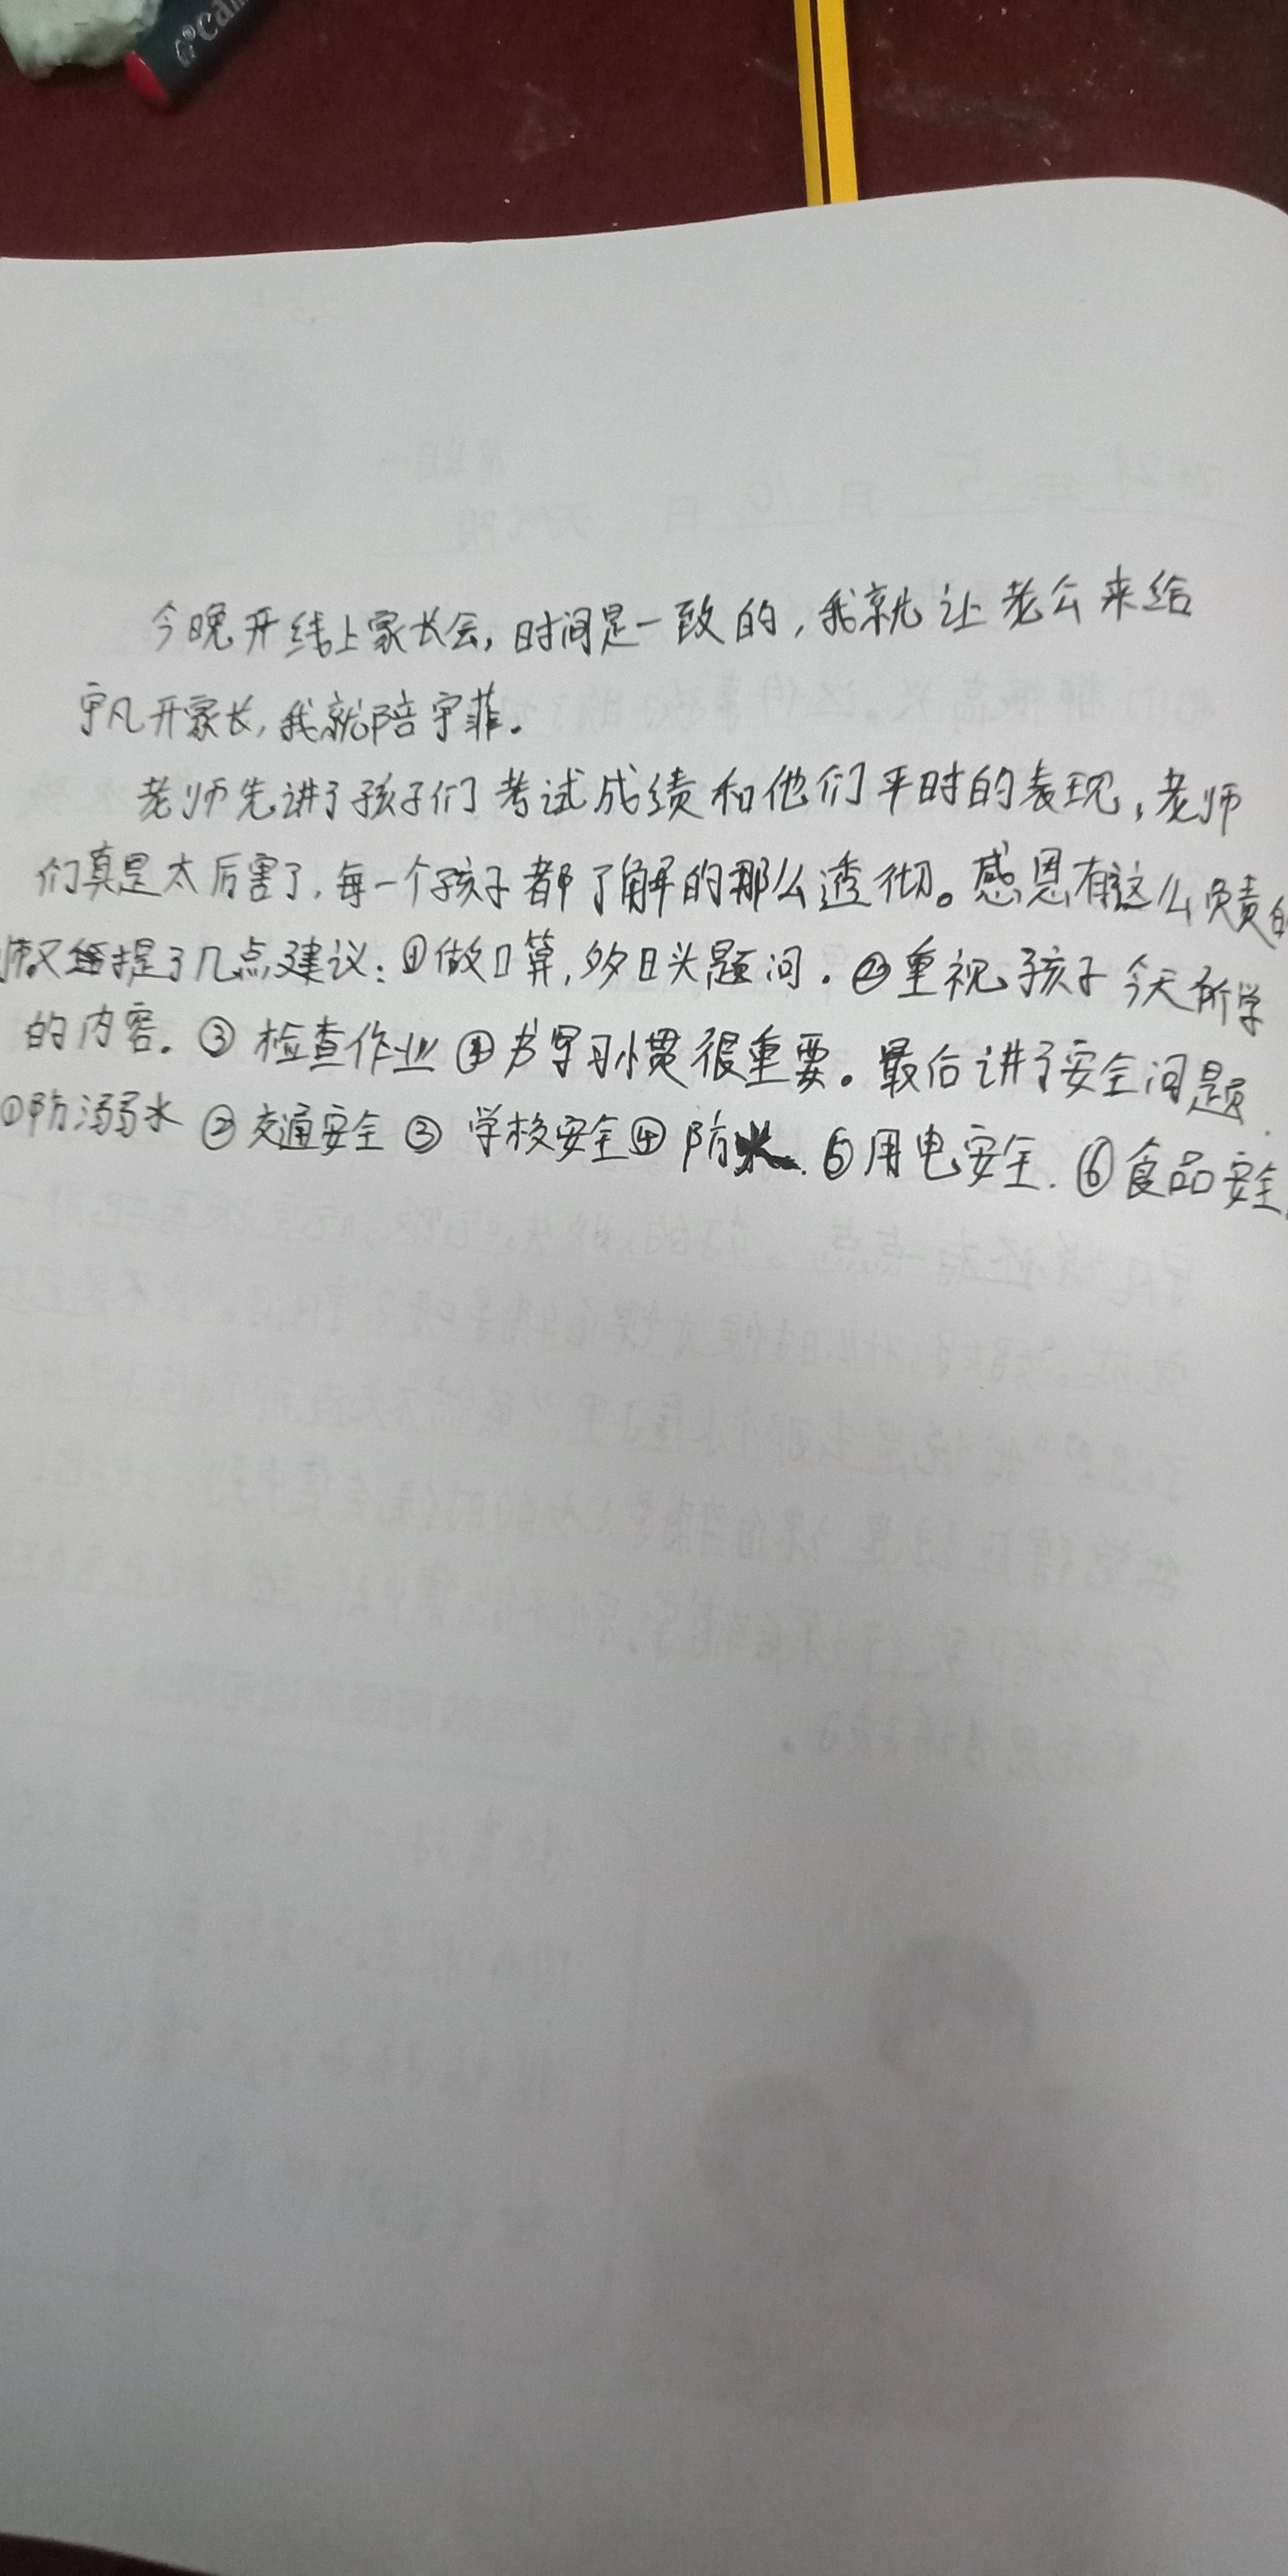 今晚开线上家长会,时间是一致的,我就让老公来给
宇凡开家长,我就陪宇菲。
老师先讲了孩子们考试成绩和他们平时的表现,老师
们真是太厉害了.每一个孩子都了解的那么透彻。感恩有这么负责的
师.又提了几点建议:①做口算,多口头题问.②重视孩子今天所学
的内容.③检查作业④书写习惯很重要。最后讲了安全问题.
①防溺水②交通安全③学校安全④防火.⑤用电安全.⑥食品安全.